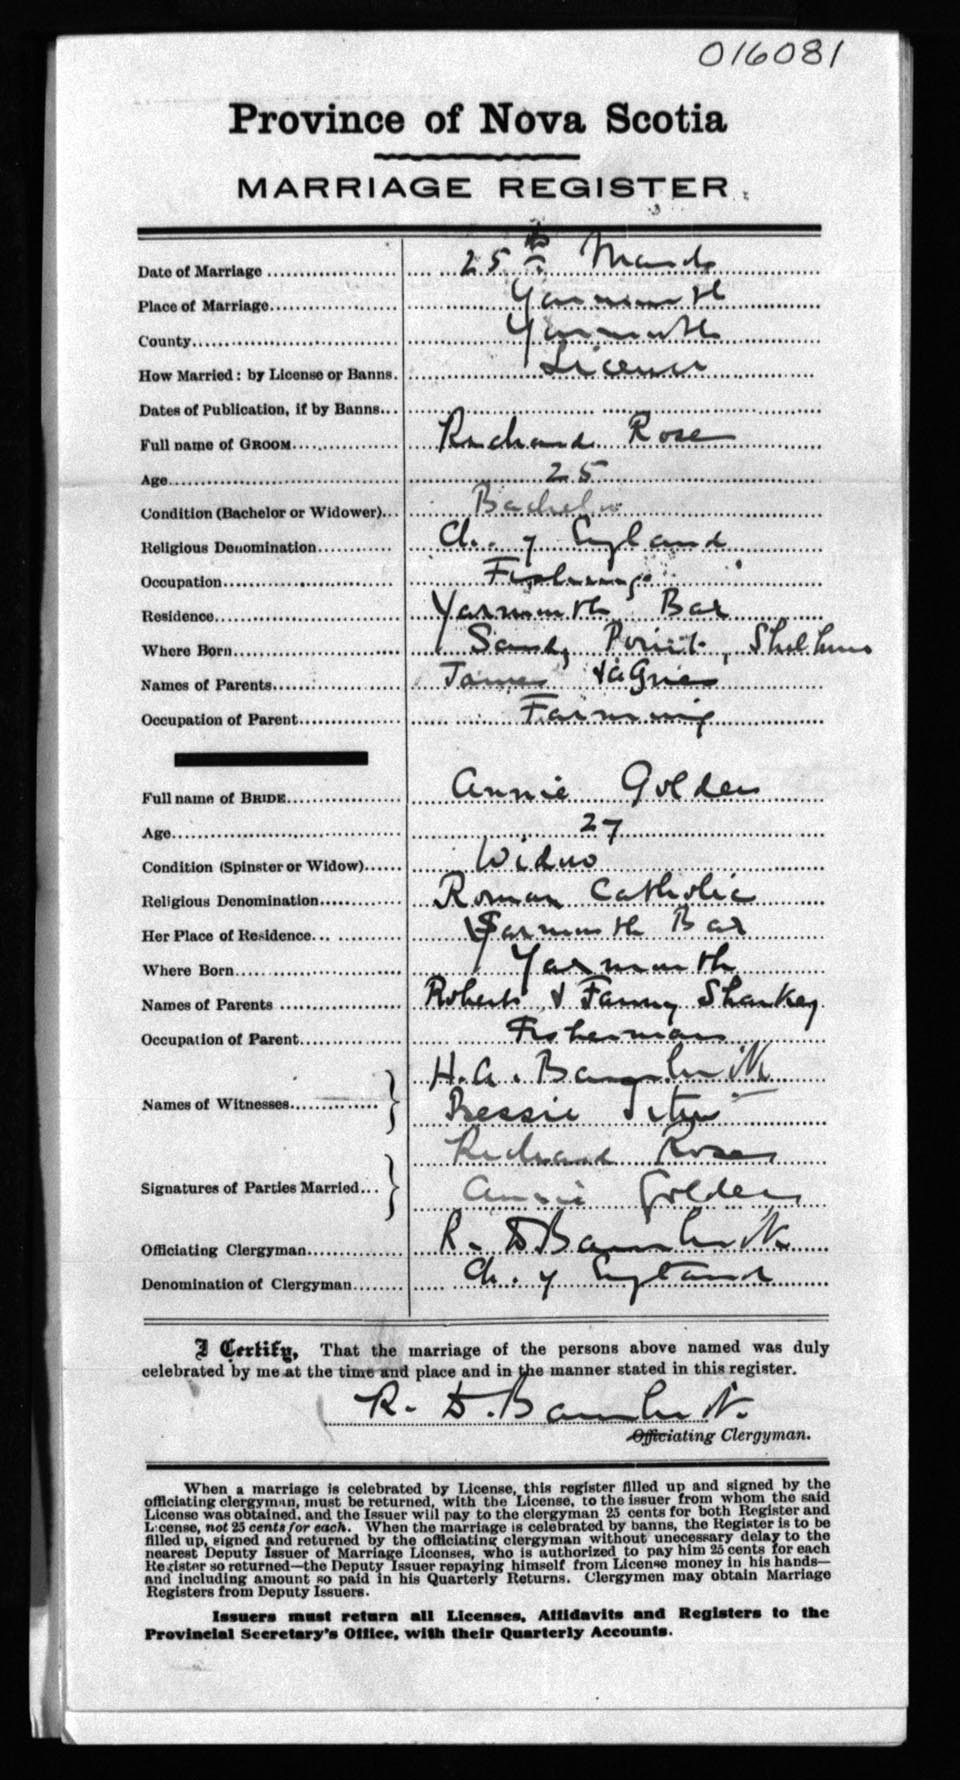 016081
Province of Nova Scotia
MARRIAGE REGISTER
Date of Marriage 25th March
Place of Marriage Yarmouth
County Yarmouth
How Married: by License or Banns. License
Dates of Publication, if by Banns
Full name of GROOM Richard Rose
Age 25
Condition (Bachelor or Widower) Bachelor
Religious Denomination Ch. of England
Occupation Fishing
Residence Yarmouth Bar
Where Born Sandy Point, Shelburne
Names of Parents James & Agnes
Occupation of Parent Farming
Full name of BRIDE Annie Golden
Age 27
Condition (Spinster or Widow) Widow
Religious Denomination Roman Catholic
Her Place of Residence Yarmouth Bar
Where Born Yarmouth
Names of Parents Robert & Fanny Sharkey
Occupation of Parent Fisherman
H. A.
Names of Witnesses
Bessie
Richard Rose
Signatures of Parties Married
Annie Golden
Officiating Clergyman R. D. Bambrick
Denomination of Clergyman Ch. of England
I Certify, That the marriage of the persons above named was duly
celebrated by me at the time and place and in the manner stated in this register.
R. D. Bambrick
Officiating Clergyman.
When a marriage is celebrated by License, this register filled up and signed by the
officiating clergyman, must be returned, with the License, to the issuer from whom the said
License was obtained, and the Issuer will pay to the clergyman 25 cents for both Register and
License, not 25 cents for each. When the marriage is celebrated by banns, the Register is to be
filled up, signed and returned by the officiating clergyman without unnecessary delay to the
nearest Deputy Issuer of Marriage Licenses, who is authorized to pay him 25 cents for each
Register so returned—the Deputy Issuer repaying himself from License money in his hands—
and including amount so paid in his Quarterly Returns. Clergymen may obtain Marriage
Registers from Deputy Issuers.
Issuers must return all Licenses, Affidavits and Registers to the
Provincial Secretary's Office, with their Quarterly Accounts.